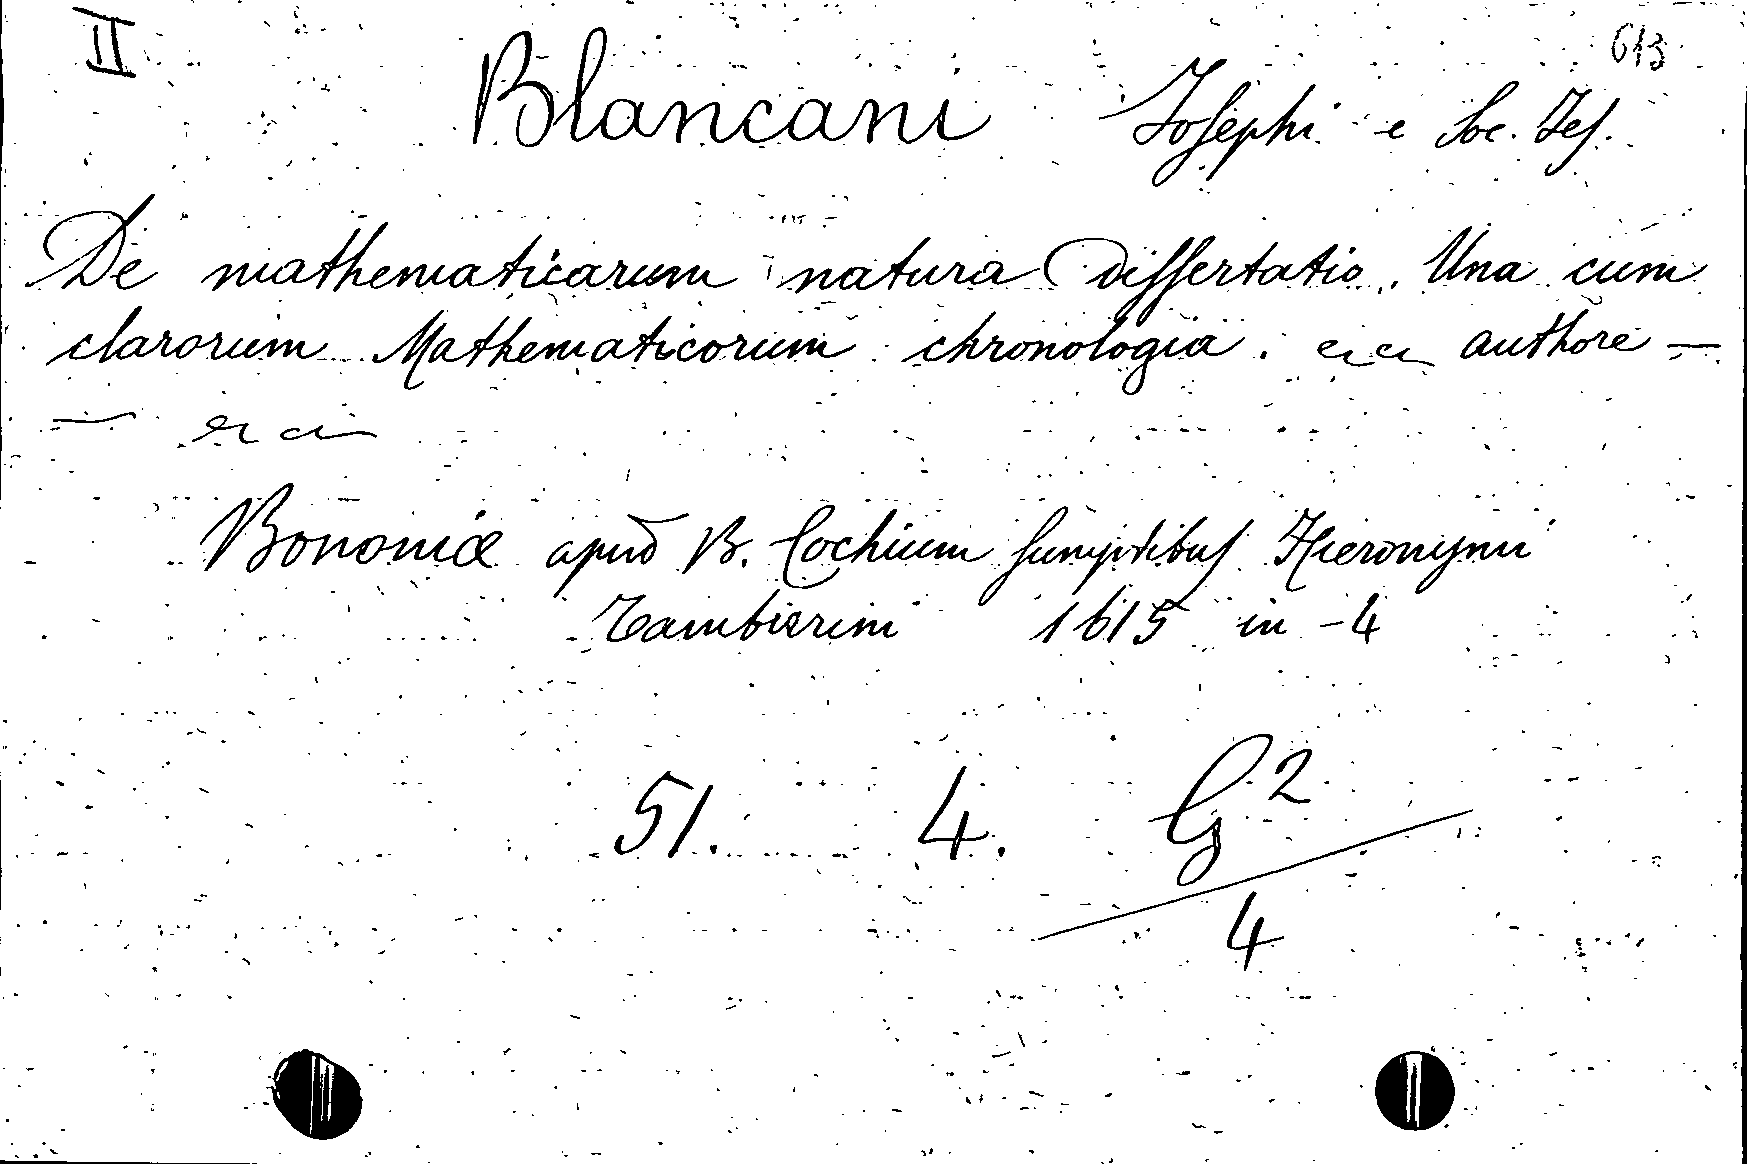 II
613
Blancani Josephi e Soc. Jes.
De mathematicarum natura dissertatio. Una cum
clarorum Mathematicorum chronologia. authore —
—
Bononiæ apud B. Cochium sumptibus Hieronymi
Tamburini 1615 in -4
51. 4. G²
4